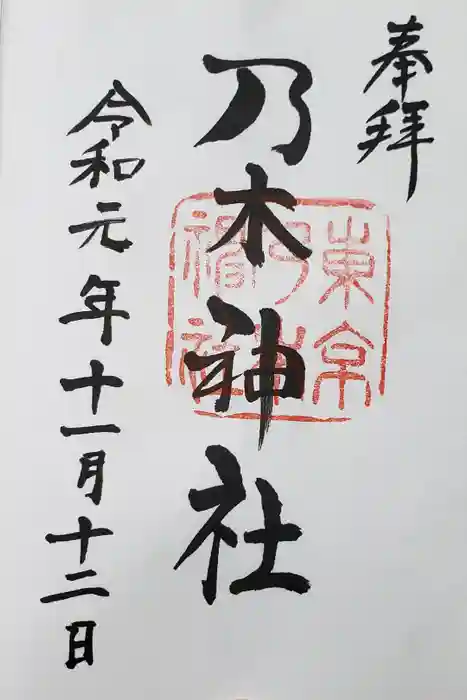 奉拝
乃木神社
東京
乃木
神社
令和元年十一月十二日